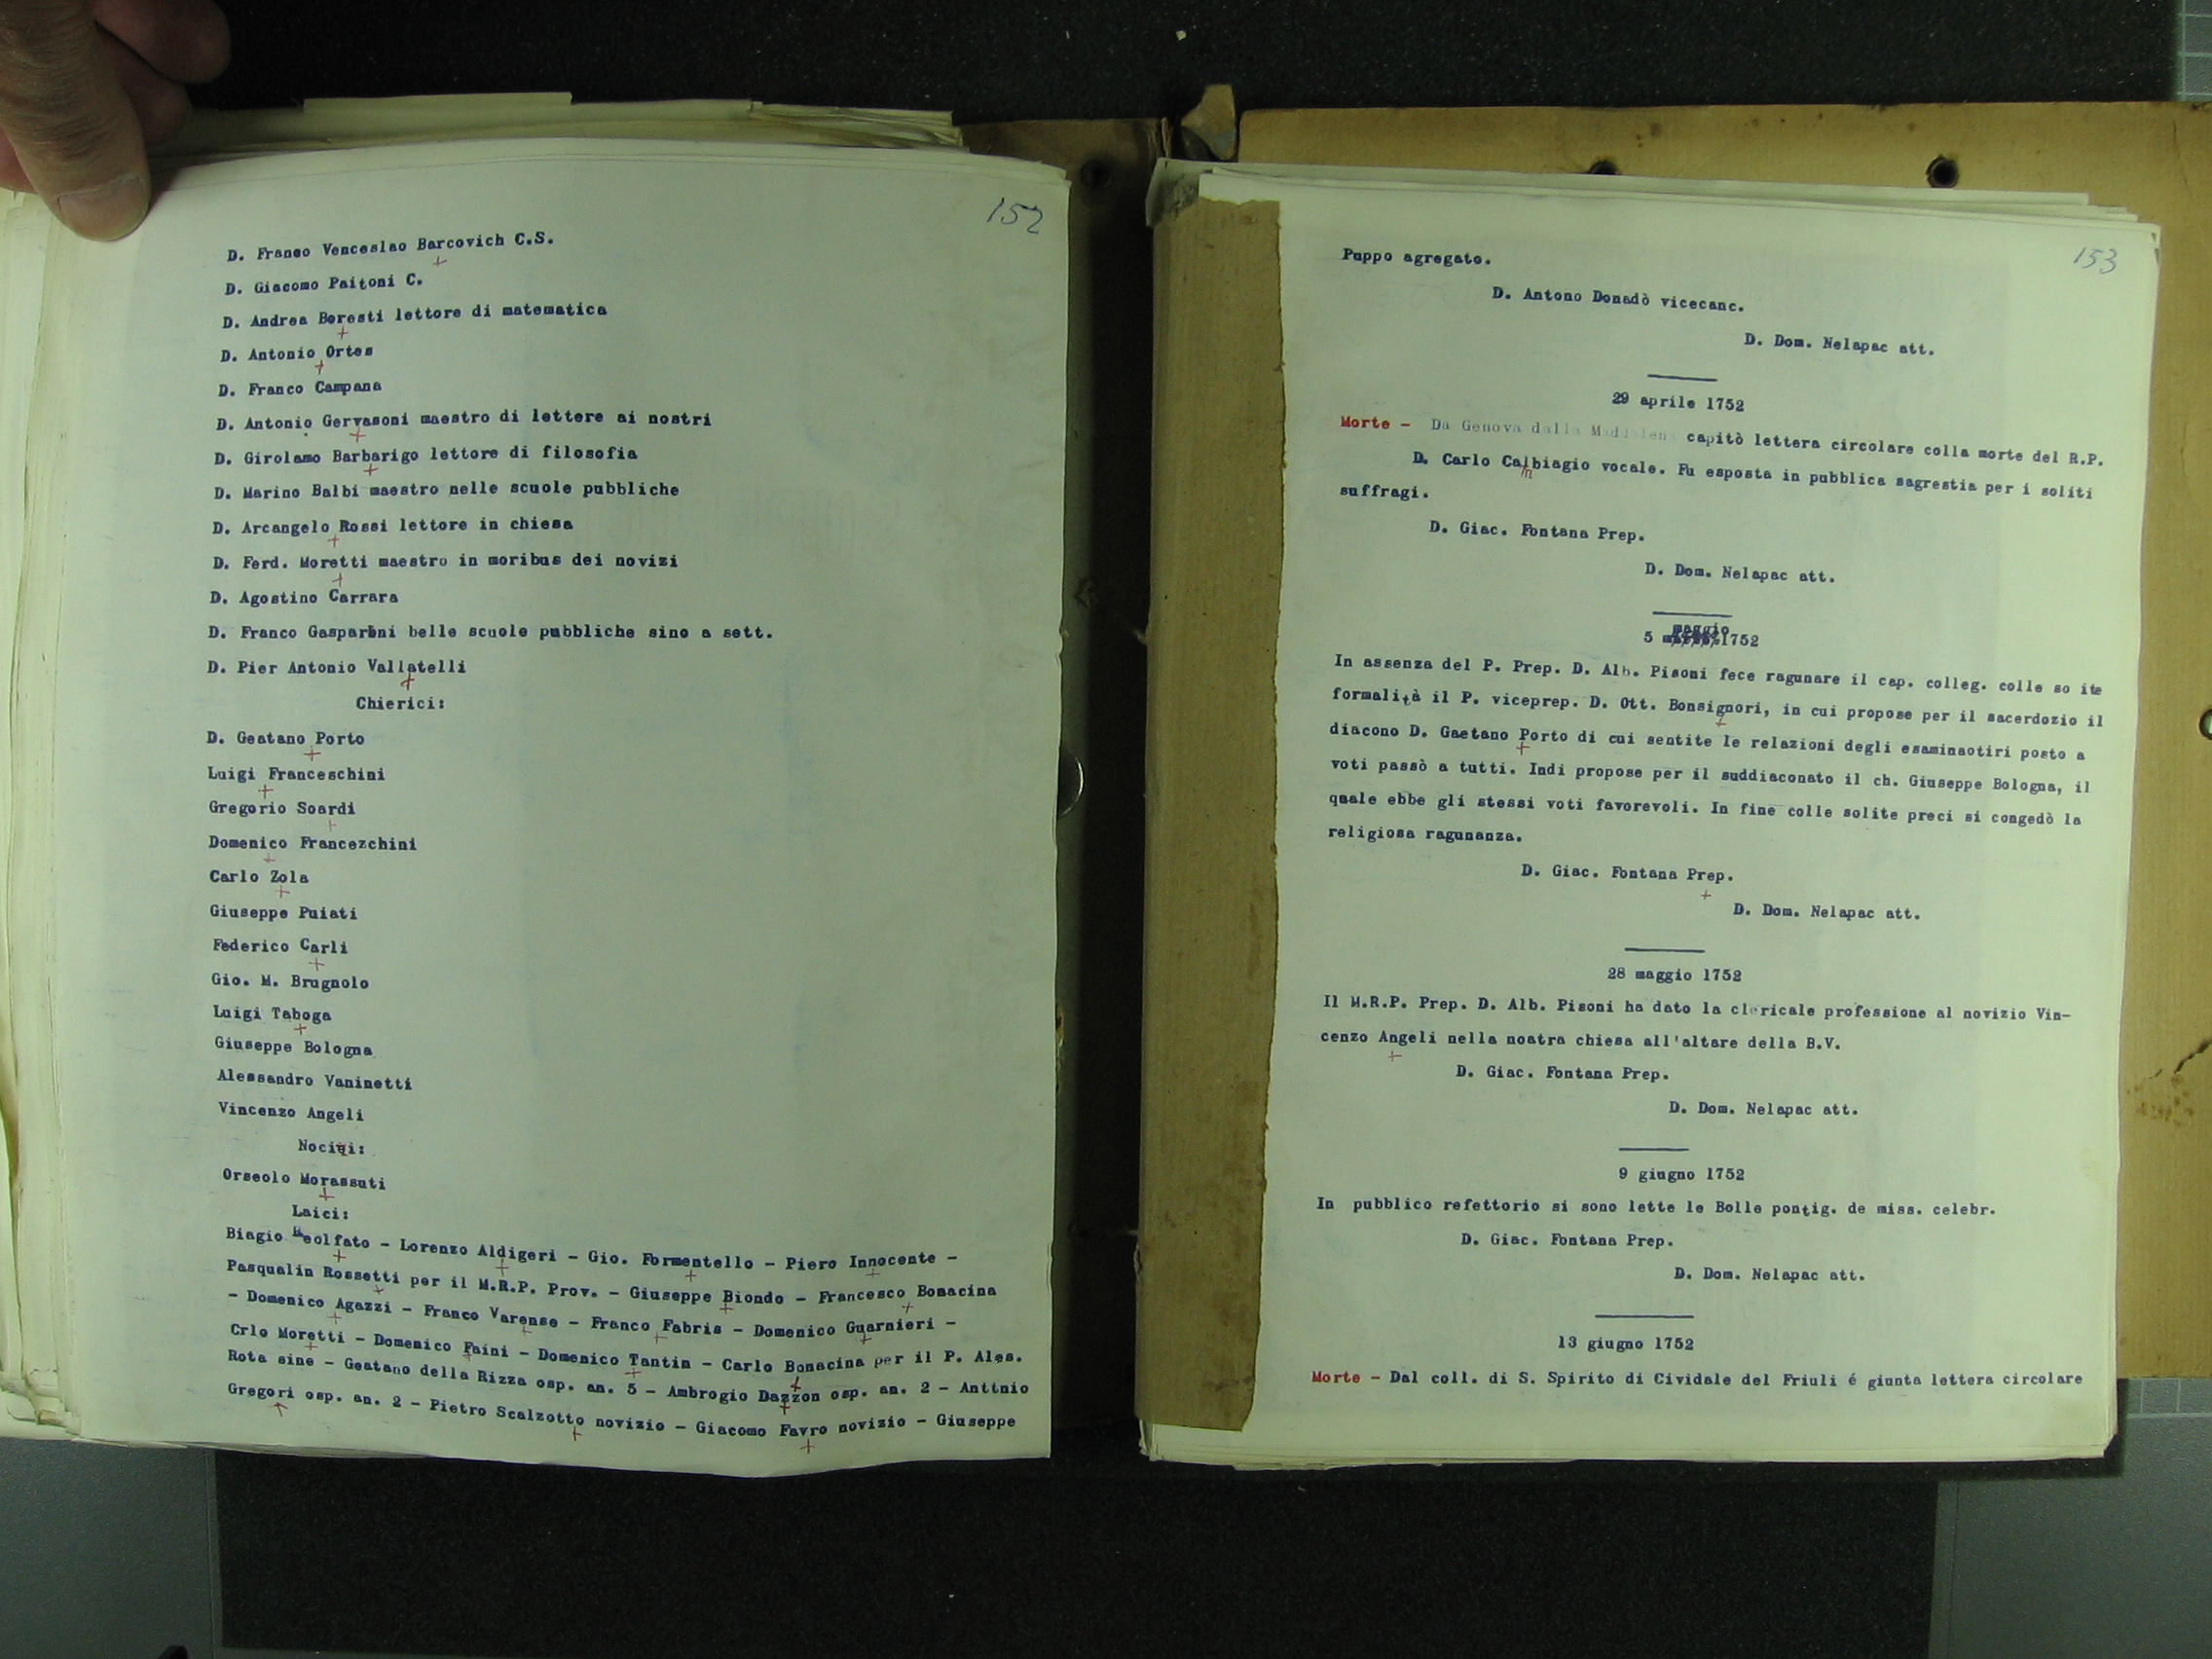 152
D. Franco Venceslao Barcovich C.S.
D. Giacomo Paitoni C.
D. Andrea Beresti lettore di matematica
D. Antonio Ortes
D. Franco Campana
D. Antonio Gervasoni maestro di lettere ai nostri
D. Girolamo Barbarigo lettore di filosofia
D. Marino Balbi maestro nelle scuole pubbliche
D. Arcangelo Rossi lettore in chiesa
D. Ferd. Moretti maestro in moribus dei novizi
D. Agostino Carrara
D. Franco Gasparini belle scuole pubbliche sino a sett.
D. Pier Antonio Vallatelli
Chierici:
D. Geatano Porto
Luigi Franceschini
Gregorio Soardi
Domenico Francezchini
Carlo Zola
Giuseppe Puiati
Federico Carli
Gio. M. Brugnolo
Luigi Taboga
Giuseppe Bologna
Alessandro Vaninetti
Vincenzo Angeli
Nocizi:
Orseolo Morassuti
Laici:
Biagio - Lorenzo Aldigeri - Gio. Formentello - Piero Innocente -
Pasqualin Rossetti per il M.R.P. Prov. - Giuseppe Biondo - Francesco Bonacina
- Domenico Agazzi - Franco Varense - Franco Fabris - Domenico Guarnieri -
Crlo Moretti - Domenico Faini - Domenico Tantin - Carlo Bonacina per il P. Ales.
Rota sine - Geatano della Rizza osp. an. 5 - Ambrogio Dazzon osp. an. 2 - Anttnio
Gregori osp. an. 2 - Pietro Scalzotto novizio - Giacomo Favro novizio - Giuseppe
153
Puppo agregato.
D. Antono Donadò vicecanc.
D. Dom. Nelapac att.
29 aprile 1752
Morte - Da Genova dalla Maddalena capitò lettera circolare colla morte del R.P.
D. Carlo Calbiagio vocale. Fu esposta in pubblica sagrestia per i soliti
suffragi.
D. Giac. Fontana Prep.
D. Dom. Nelapac att.
5 maggio 1752
In assenza del P. Prep. D. Alb. Pisoni fece ragunare il cap. colleg. colle so ite
formalità il P. viceprep. D. Ott. Bonsignori, in cui propose per il sacerdozio il
diacono D. Gaetano Porto di cui sentite le relazioni degli esaminaotiri posto a
voti passò a tutti. Indi propose per il suddiaconato il ch. Giuseppe Bologna, il
quale ebbe gli stessi voti favorevoli. In fine colle solite preci si congedò la
religiosa ragunanza.
D. Giac. Fontana Prep.
D. Dom. Nelapac att.
28 maggio 1752
Il M.R.P. Prep. D. Alb. Pisoni ha dato la clericale professione al novizio Vin-
cenzo Angeli nella noatra chiesa all'altare della B.V.
D. Giac. Fontana Prep.
D. Dom. Nelapac att.
9 giugno 1752
In pubblico refettorio si sono lette le Bolle pontig. de miss. celebr.
D. Giac. Fontana Prep.
D. Dom. Nelapac att.
13 giugno 1752
Morte - Dal coll. di S. Spirito di Cividale del Friuli é giunta lettera circolare